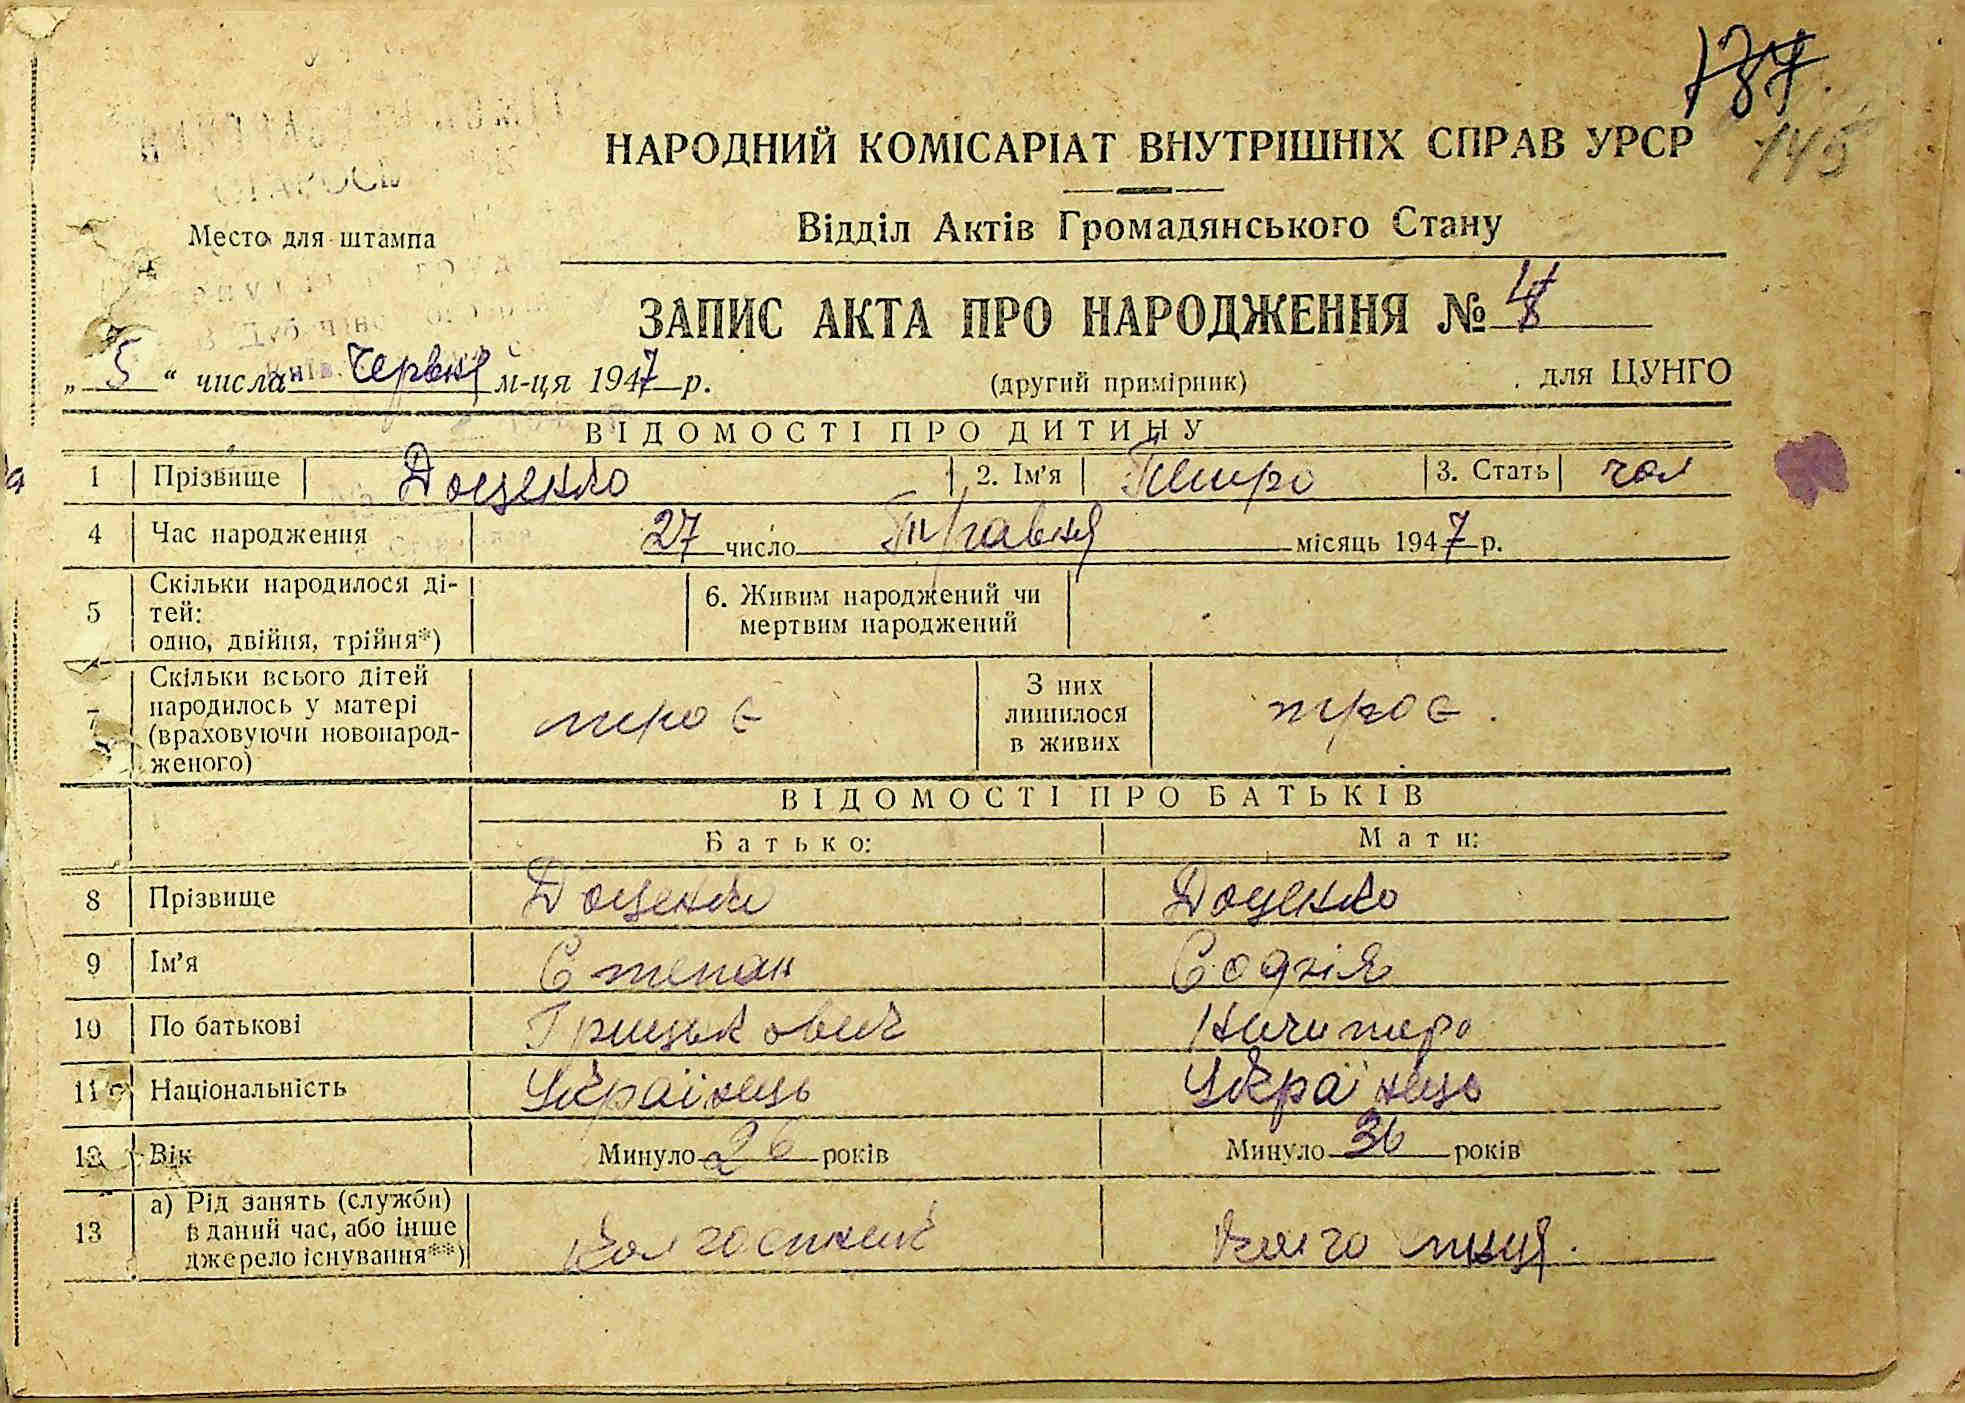 137
145
НАРОДНИЙ КОМІСАРІАТ ВНУТРІШНІХ СПРАВ УРСР
Место для штампа
Відділ Актів Громадянського Стану
ЗАПИС АКТА ПРО НАРОДЖЕННЯ №
„ 5 “ числа Червня м-ця 1947 р. (другий примірник) для ЦУНГО
ВІДОМОСТІ ПРО ДИТИНУ
1 Прізвище Доценко 2. Ім'я Петро 3. Стать чол
4 Час народження 27 число Травня місяць 1947 р.
5 Скільки народилося ді-
тей:
одно, двійня, трійня*)
6. Живим народжений чи
мертвим народжений
7 Скільки всього дітей
народилось у матері
(враховуючи новонарод-
женого)
троє
З них
лишилося
в живих
троє.
ВІДОМОСТІ ПРО БАТЬКІВ
Батько: Мати:
8 Прізвище Доценко Доценко
9 Ім'я Степан Софія
10 По батькові Грицькович Ничипоро
11 Національність Українець Українець
12 Вік Минуло 26 років Минуло 36 років
13 а) Рід занять (служби)
в даний час, або інше
джерело існування**)
Колгоспник Колгоспниця.